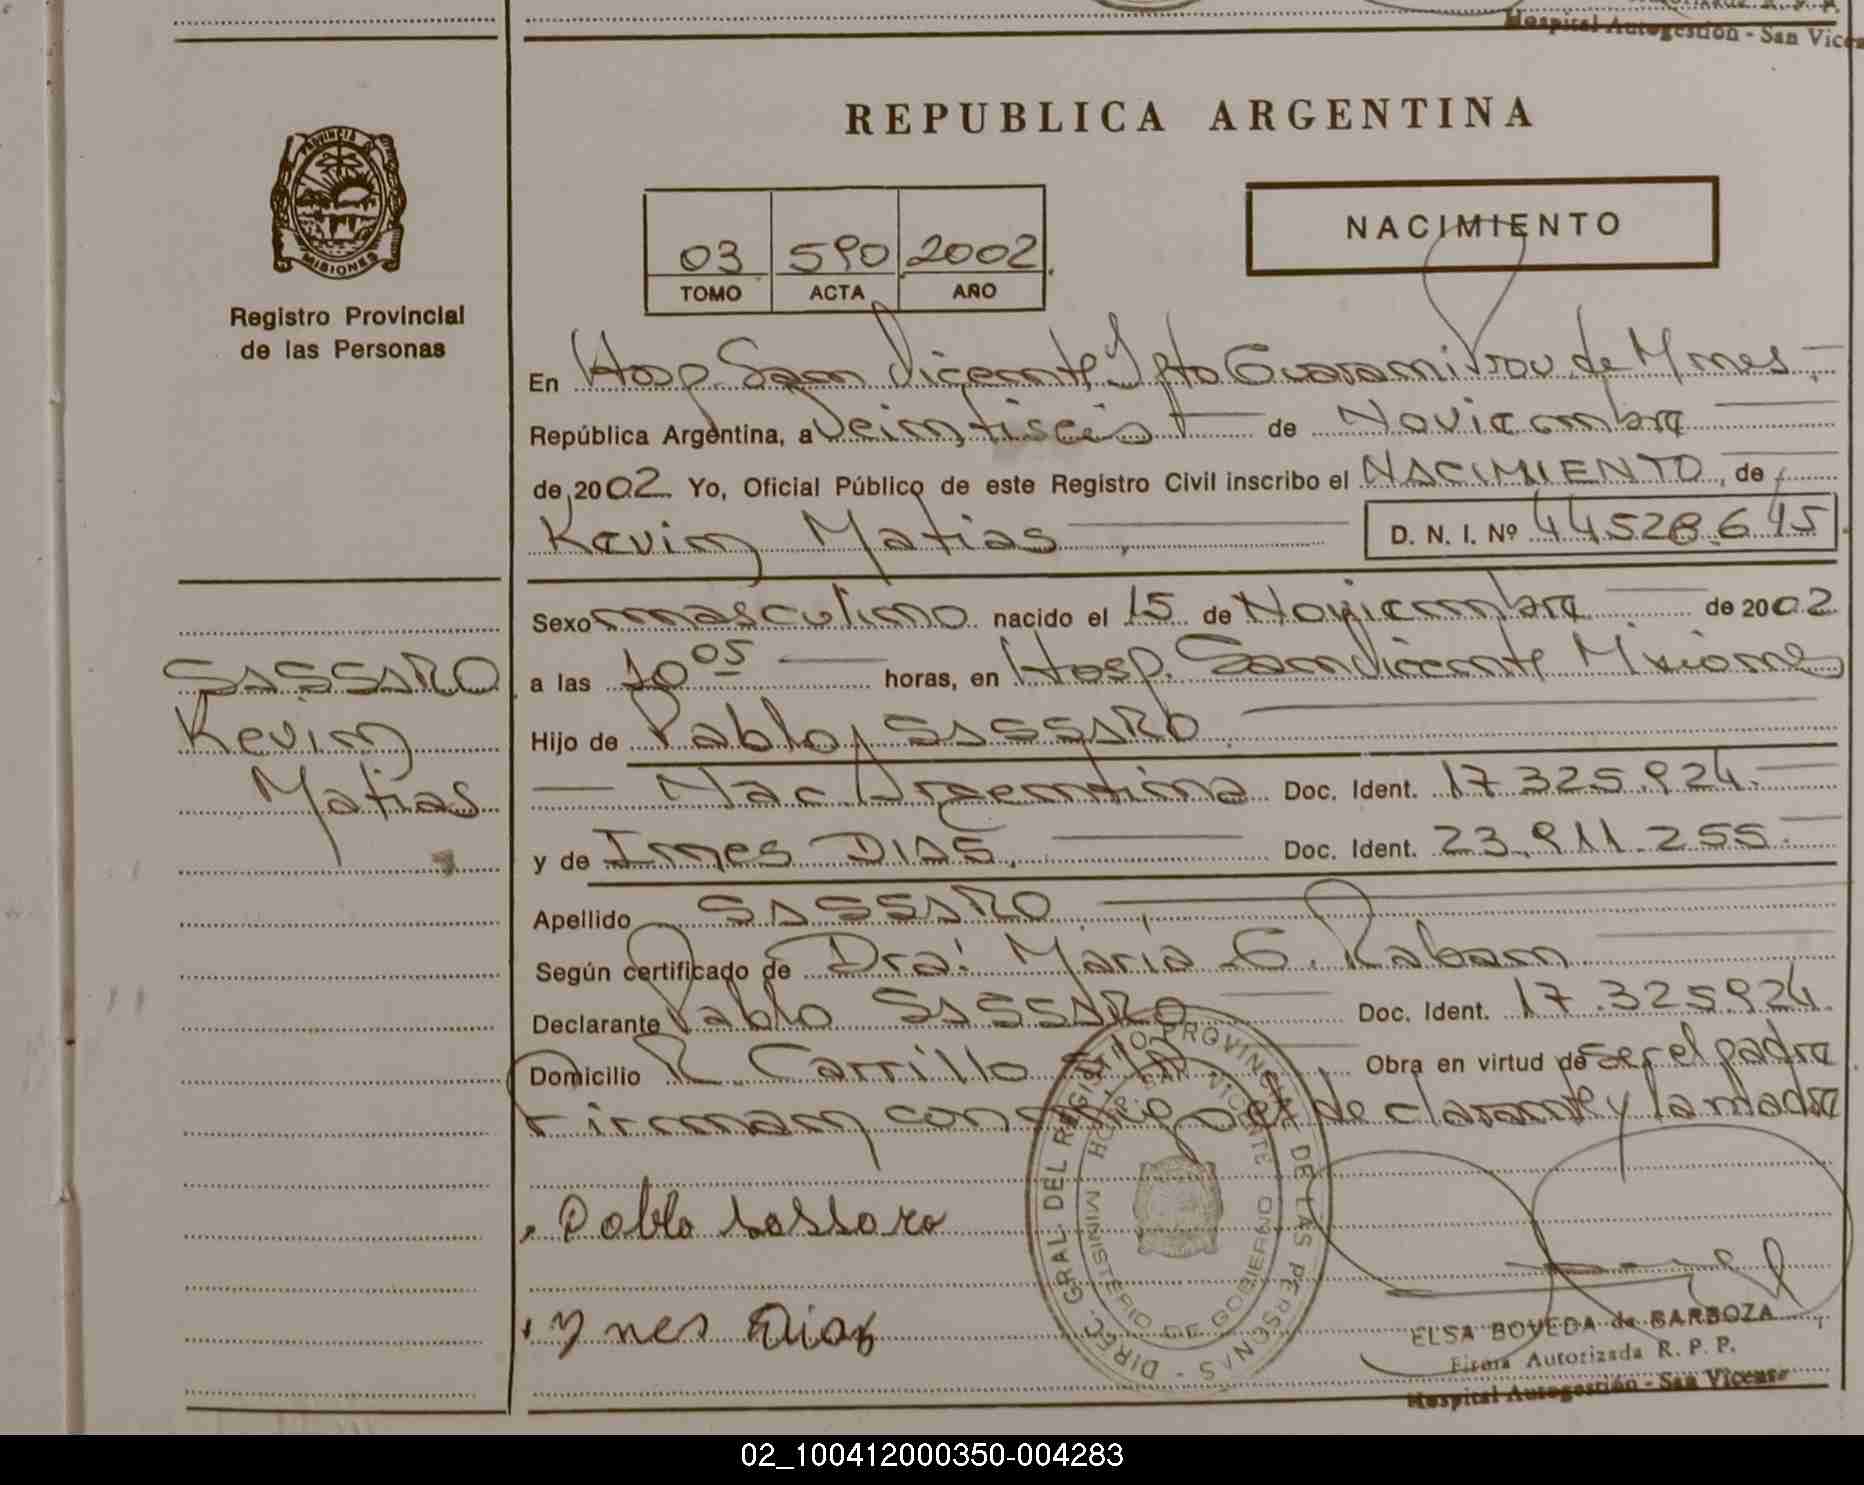 Hospital Autogestión - San Vice
REPUBLICA ARGENTINA
PROVINCIA DE
MISIONES
Registro Provincial
de las Personas
NACIMIENTO
03 590 2002
TOMO ACTA AÑO
En Hosp. San Vicente Dpto Guarani Prov. de Mnes.
República Argentina, a Veintiseis de Noviembre
de 2002 Yo, Oficial Público de este Registro Civil inscribo el NACIMIENTO, de
Kevin Matias D. N. I. Nº 44528.645
Sexo masculino nacido el 15 de Noviembre de 2002
SASSARO
a las 10 05 horas, en Hosp. San Vicente Misiones
Kevin
Hijo de Pablo SASSARO
Matias
Nac Argentina Doc. Ident. 17.325.924.
y de Ines DIAS, Doc. Ident. 23.911.255.
Apellido SASSARO
Según certificado de Dra: Maria G. Raban
Declarante Pablo SASSARO Doc. Ident. 17.325924.
Domicilio R. Carrillo S/Nº Obra en virtud de ser el padre
Firman conmigo el declarante y la madre
Pablo Sassaro
Ynes Dias
DIREC. GRAL DEL REGISTRO PROVINCIAL DE LAS PERSONAS -
HOSPITAL SAN VICENTE
MINISTERIO DE GOBIERNO
ELSA BOVEDA de BARBOZA
Firma Autorizada R. P. P.
Hospital Autogestión - San Vicente
02_100412000350-004283